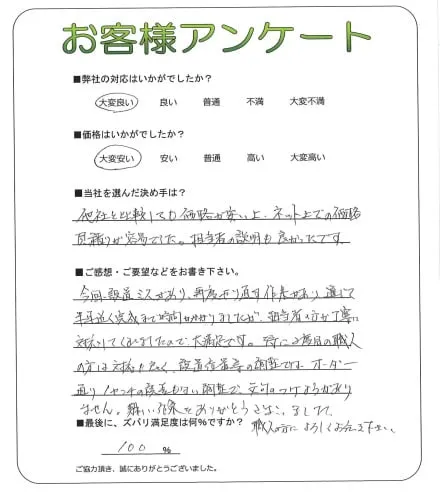 お客様アンケート
■弊社の対応はいかがでしたか?
大変良い 良い 普通 不満 大変不満
■価格はいかがでしたか?
大変安い 安い 普通 高い 大変高い
■当社を選んだ決め手は?
他社と比較しても価格が安い上、ネット上での価格
見積りが容易でした。担当者の説明も良かったです。
■ご感想・ご要望などをお書き下さい。
今回、製造ミスがあり、再度やり直す作業があり、通じて
半年近く完成まで時間がかかりましたが、担当者の方が丁寧に
対応してくれましたので、大満足です。特に2度目の職人
の方は対応も良く、調整です。オーダー
通り1センチの誤差もない調整で、文句のつけようがあり
ません。ありがとうございました。
■最後に、ズバリ満足度は何%ですか? 職人の方によろしくお伝え下さい。
100 %
ご協力頂き、誠にありがとうございました。